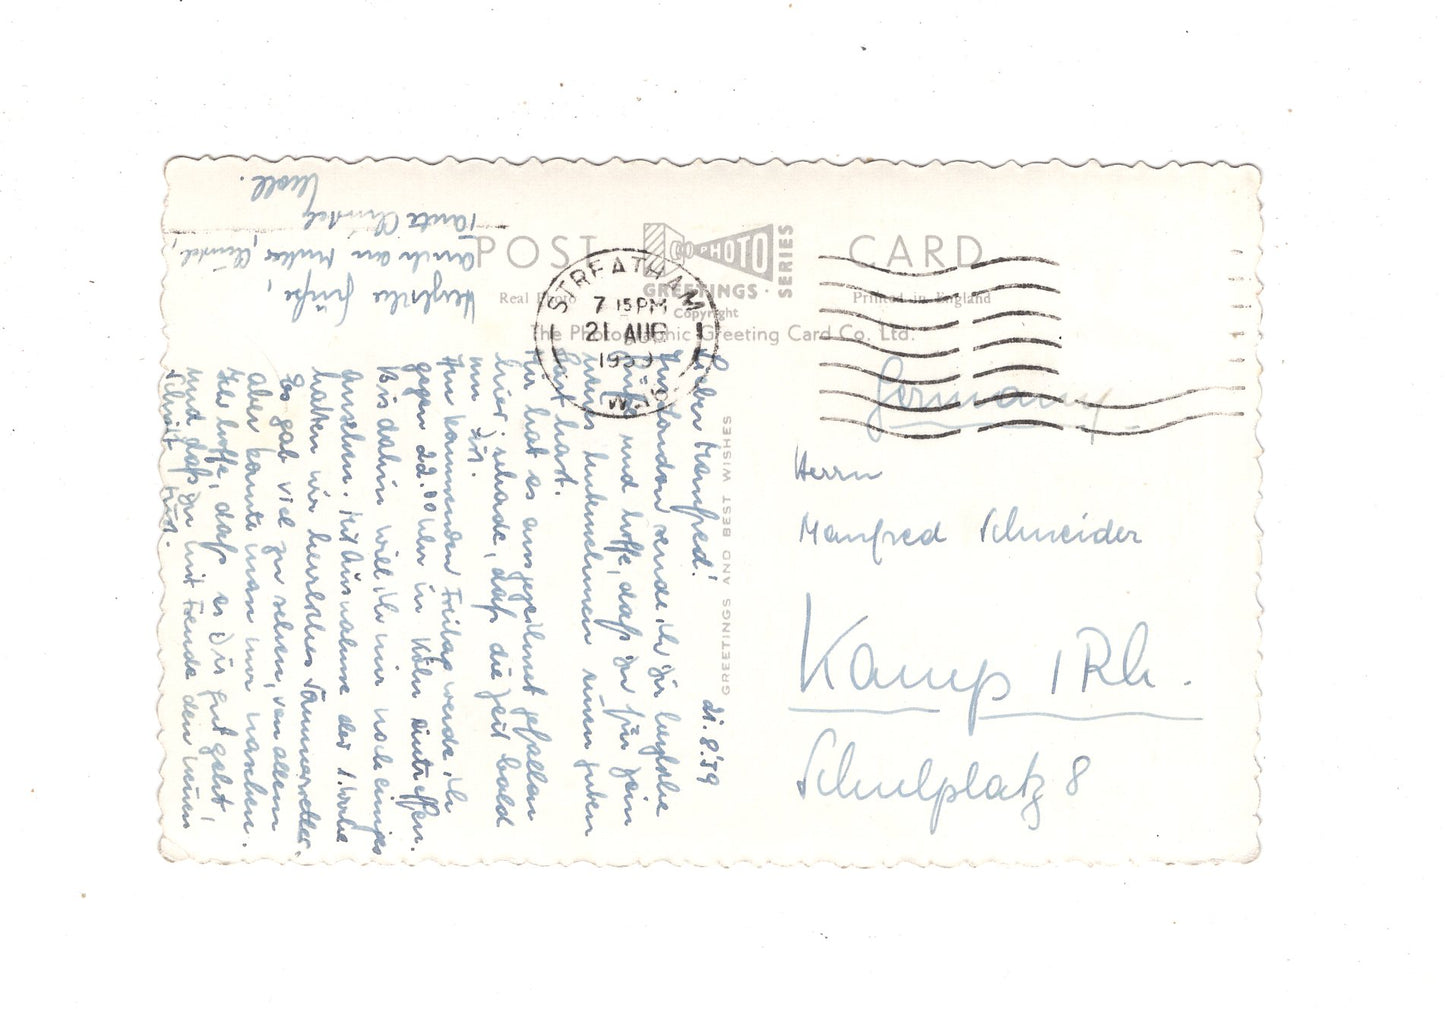 POST CARD
PHOTO GREETINGS · SERIES
Real Photo
Copyright
Printed in England
The Photographic Greeting Card Co., Ltd.
STREATHAM
7 15 PM
21 AUG
1959
S.W.16
GREETINGS AND BEST WISHES
21.8.'59
Lieber Manfred!
Aus London sende ich Dir herzliche
Grüße und hoffe, daß Du für Dein
neues Unternehmen einen guten
Start hast.
Mir hat es ausgezeichnet gefallen
hier, schade, daß die Zeit bald
um ist.
Am kommenden Freitag werde ich
gegen 22.00 Uhr in Köln eintreffen.
Bis dahin will ich mir noch einiges
ansehen. Mit Ausnahme der 1. Woche
hatten wir herrliches Sommerwetter.
Es gab viel zu sehen, von allem
aber konnte man nur naschen.
Ich hoffe, daß es Dir gut geht,
und daß Du mit Freude den neuen
Schritt tust.
Herzliche Grüße,
auch an Mutter, Christel,
Tante Christel
Germany
Herrn
Manfred Schneider
Kamp / Rh.
Schulplatz 8